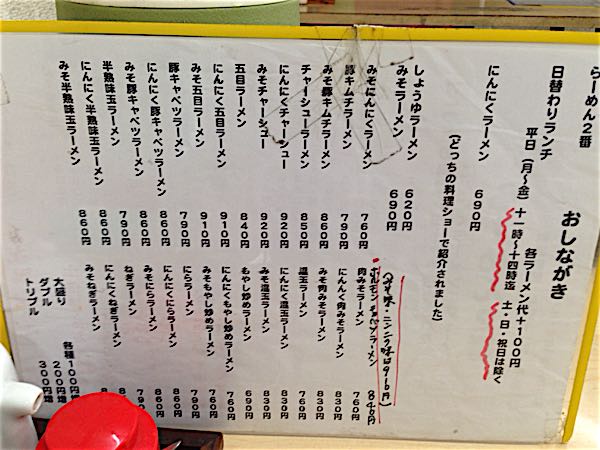 らーめん２番
おしながき
日替わりランチ 各ラーメン代＋１００円
平日（月～金）十一時～十四時迄 土・日・祝日は除く
にんにくラーメン ６９０円
（どっちの料理ショーで紹介されました）
しょうゆラーメン ６２０円
みそラーメン ６９０円
みそにんにくラーメン ７６０円
豚キムチラーメン ７９０円
みそ豚キムチラーメン ８６０円
チャーシューラーメン ８５０円
にんにくチャーシュー ９２０円
みそチャーシュー ９２０円
五目ラーメン ８４０円
にんにく五目ラーメン ９１０円
みそ五目ラーメン ９１０円
豚キャベツラーメン ７９０円
にんにく豚キャベツラーメン ８６０円
みそ豚キャベツラーメン ８６０円
半熟味玉ラーメン ７９０円
にんにく半熟味玉ラーメン ８６０円
みそ半熟味玉ラーメン ８６０円
（みそ味・ニンニク味は９１０円）
ホルモンキャベツラーメン ８４０円
肉みそラーメン ７６０円
にんんく肉みそラーメン ８３０円
みそ肉みそラーメン ８３０円
温玉ラーメン ７６０円
にんにく温玉ラーメン ８３０円
みそ温玉ラーメン ８３０円
もやし炒めラーメン ６９０円
にんにくもやし炒めラーメン ７６０円
みそもやし炒めラーメン ７６０円
にらラーメン ７９０円
にんにくにらラーメン ８６０円
みそにらラーメン ８６０円
ねぎラーメン ７９０
にんにくねぎラーメン ８
みそねぎラーメン ８
大盛り 各種１００円増
ダブル ２００円増
トリプル ３００円増